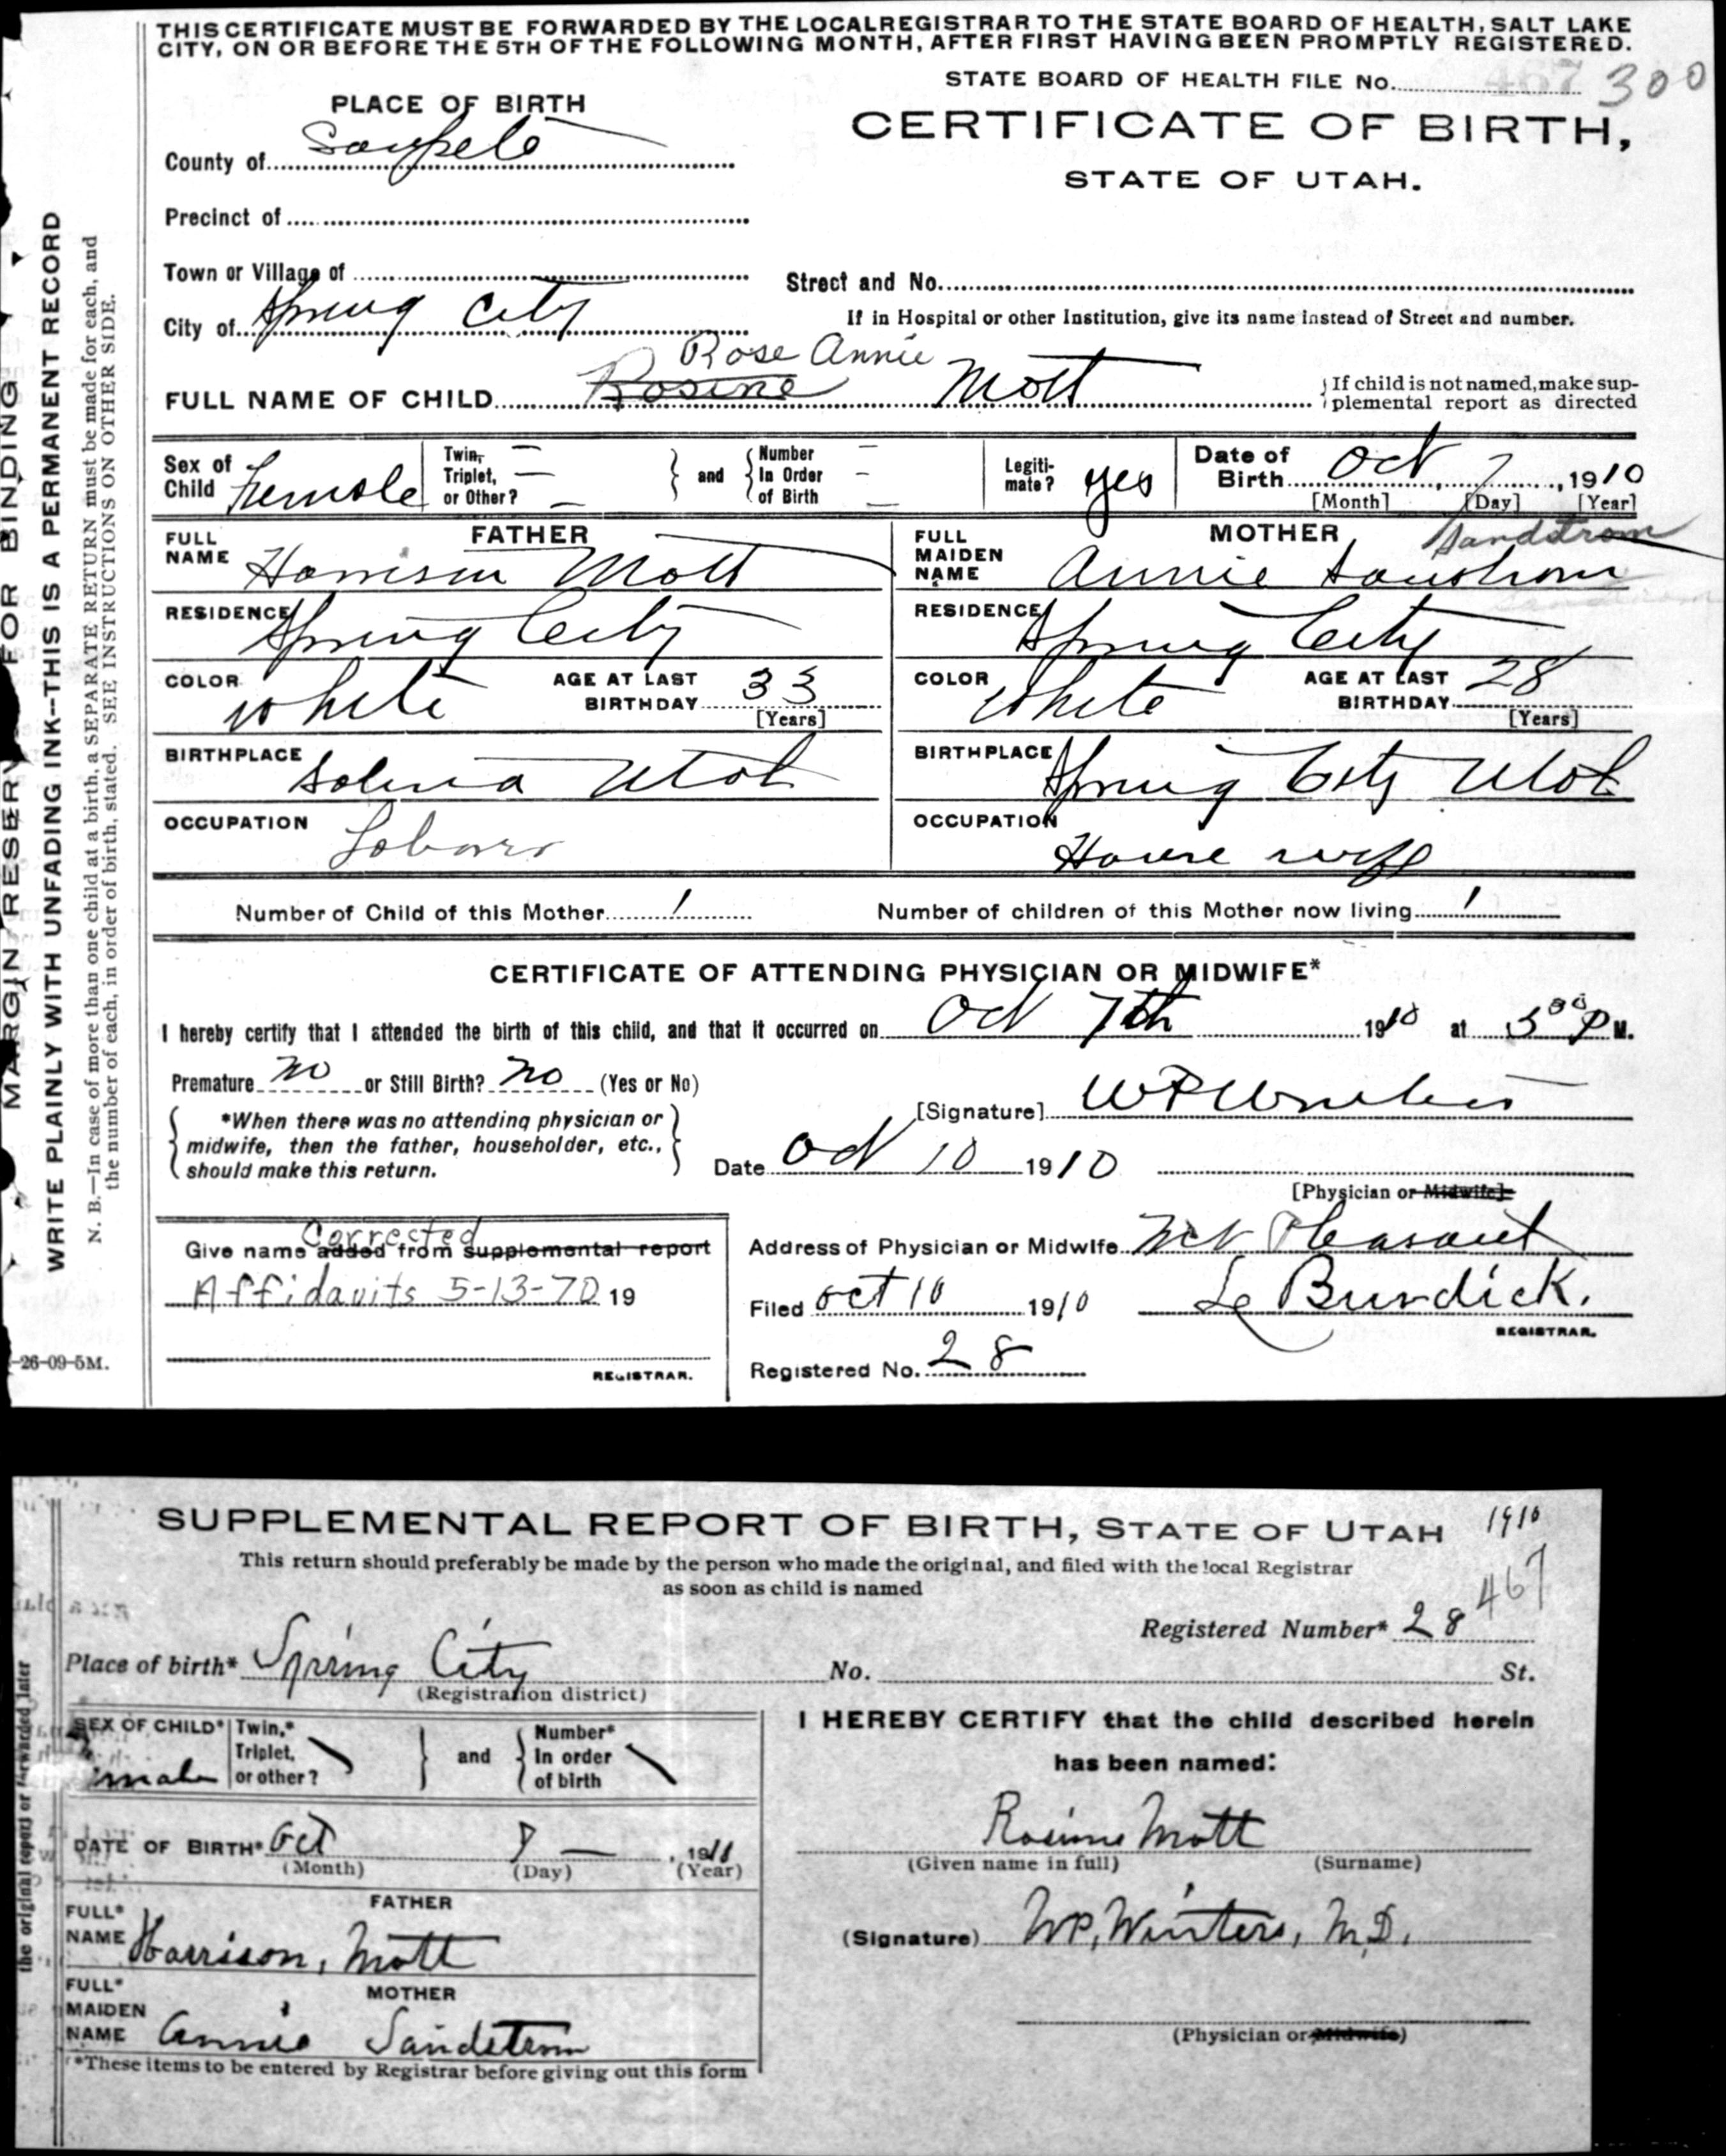 THIS CERTIFICATE MUST BE FORWARDED BY THE LOCAL REGISTRAR TO THE STATE BOARD OF HEALTH, SALT LAKE
CITY, ON OR BEFORE THE 5TH OF THE FOLLOWING MONTH, AFTER FIRST HAVING BEEN PROMPTLY REGISTERED.
STATE BOARD OF HEALTH FILE No. 467 300
PLACE OF BIRTH
CERTIFICATE OF BIRTH,
STATE OF UTAH.
County of Sanpete
Precinct of
Town or Village of
Street and No.
City of Spring City
If in Hospital or other Institution, give its name instead of Street and number.
Rose Annie
FULL NAME OF CHILD Rosine Mott
If child is not named, make sup-
plemental report as directed
Sex of Child Female
Twin, Triplet, or Other? — — —
and
Number In Order of Birth — — —
Legiti-mate? yes
Date of Birth Oct 7, 1910
[Month] [Day] [Year]
FATHER
FULL NAME Harrison Mott
RESIDENCE Spring City
COLOR White
AGE AT LAST BIRTHDAY 33
[Years]
BIRTHPLACE Salina Utah
OCCUPATION Laborer
MOTHER Sandstrom
FULL MAIDEN NAME Annie
RESIDENCE Spring City
COLOR White
AGE AT LAST BIRTHDAY 28
[Years]
BIRTHPLACE Spring City Utah
OCCUPATION House wife
Number of Child of this Mother 1
Number of children of this Mother now living 1
CERTIFICATE OF ATTENDING PHYSICIAN OR MIDWIFE*
I hereby certify that I attended the birth of this child, and that it occurred on Oct 7th 1910 at P M.
Premature no or Still Birth? no (Yes or No)
*When there was no attending physician or
midwife, then the father, householder, etc.,
should make this return.
[Signature] W P Winters
Date Oct 10 1910
[Physician or Midwife]
Corrected
Give name added from supplemental report
Affidavits 5-13-70 19
REGISTRAR.
Address of Physician or Midwife Mt Pleasant
Filed Oct 10 1910 Burdick.
REGISTRAR.
Registered No. 28
MARGIN RESERV FOR BINDING
WRITE PLAINLY WITH UNFADING INK--THIS IS A PERMANENT RECORD
N. B.—In case of more than one child at a birth, a SEPARATE RETURN must be made for each, and
the number of each, in order of birth, stated. SEE INSTRUCTIONS ON OTHER SIDE.
-26-09-5M.
SUPPLEMENTAL REPORT OF BIRTH, STATE OF UTAH 1910
This return should preferably be made by the person who made the original, and filed with the local Registrar
as soon as child is named
467
Registered Number* 28
Place of birth* Spring City No. St.
(Registration district)
SEX OF CHILD*
Twin,* Triplet, or other?
and
Number* In order of birth
DATE OF BIRTH* Oct 7 — , 1910
(Month) (Day) (Year)
FATHER
FULL* NAME Harrison, Mott
MOTHER
FULL* MAIDEN NAME Annie Sandstrom
*These items to be entered by Registrar before giving out this form
I HEREBY CERTIFY that the child described herein
has been named:
Rosine Mott
(Given name in full) (Surname)
(Signature) W.P. Winters, M.D.
(Physician or Midwife)
the original report or forwarded later